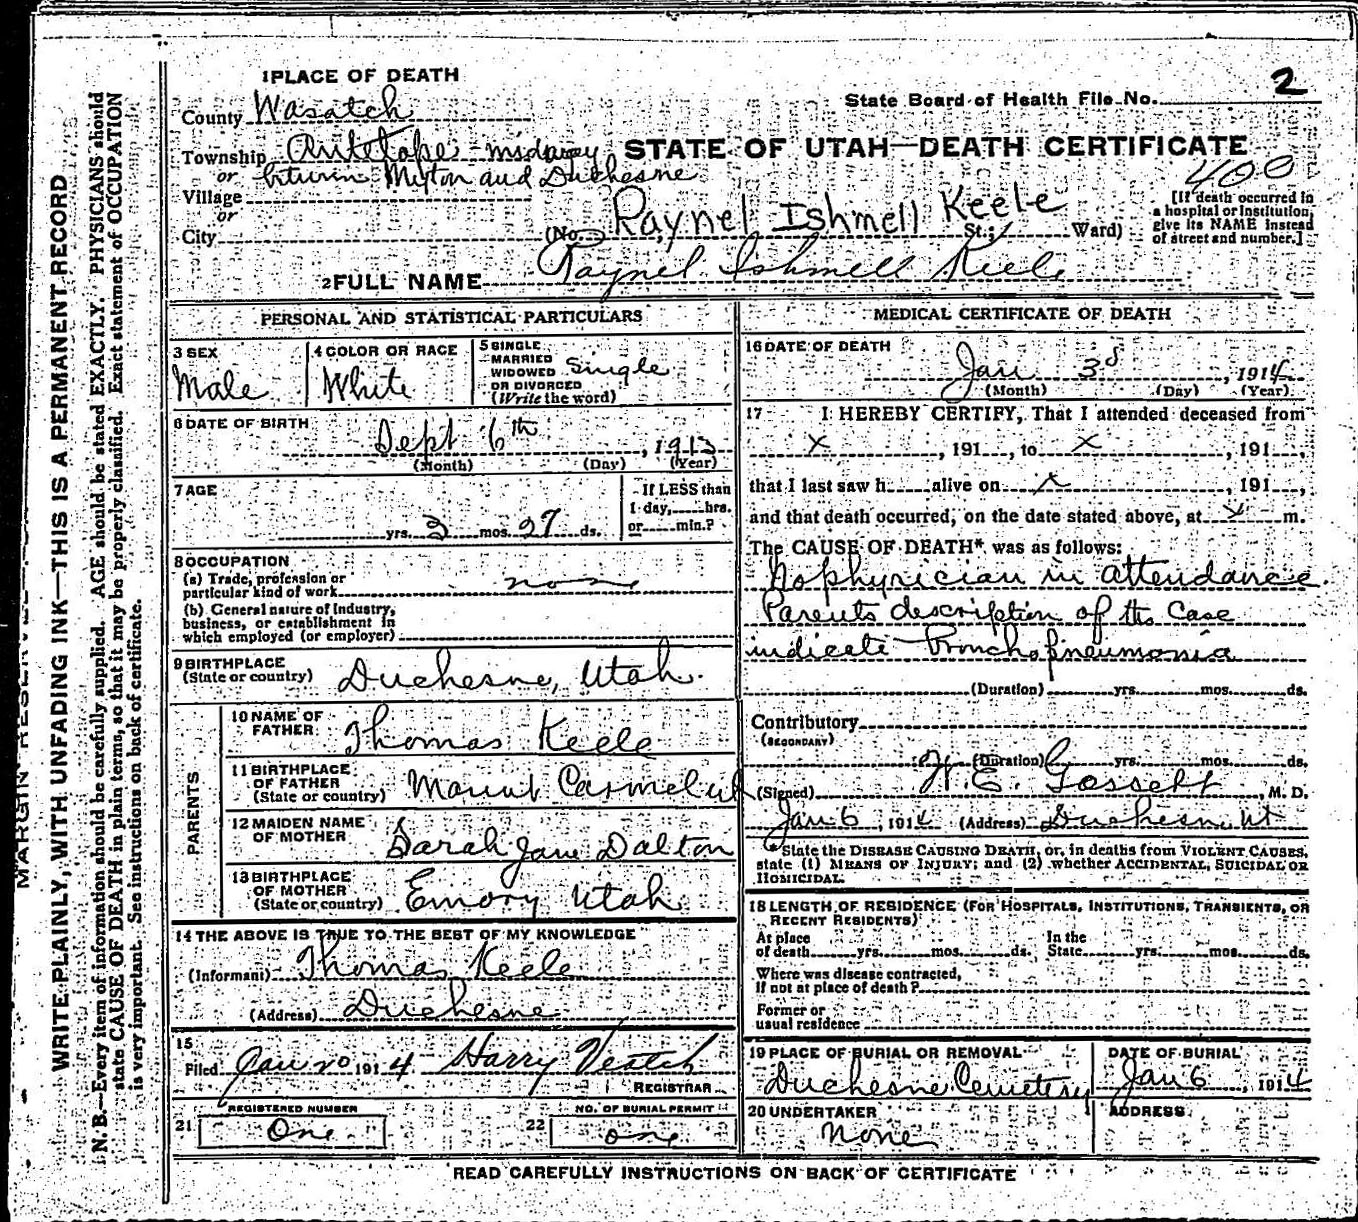 2
1 PLACE OF DEATH
State Board of Health File No.
County Wasatch
STATE OF UTAH—DEATH CERTIFICATE
Township
400
or between Myton and Duchesne
Village
or
City
(No. Raynel Ishmell Keele St.; Ward)
[If death occurred in
a hospital or institution,
give its NAME instead
of street and number.]
2 FULL NAME Raynel Ishmell Keele
PERSONAL AND STATISTICAL PARTICULARS
3 SEX
Male
4 COLOR OR RACE
White
5 SINGLE
MARRIED
WIDOWED
OR DIVORCED
(Write the word)
Single
6 DATE OF BIRTH
Sept 6th, 1913
(Month) (Day) (Year)
7 AGE
yrs. 3 mos. 27 ds.
If LESS than
1 day, hrs.
or min.?
8 OCCUPATION
(a) Trade, profession or
particular kind of work none
(b) General nature of Industry,
business, or establishment in
which employed (or employer)
9 BIRTHPLACE
(State or country) Duchesne, Utah.
PARENTS
10 NAME OF
FATHER Thomas Keele
11 BIRTHPLACE
OF FATHER
(State or country) Mount Carmel Ut
12 MAIDEN NAME
OF MOTHER Sarah Jane Dalton
13 BIRTHPLACE
OF MOTHER
(State or country) Emory Utah
14 THE ABOVE IS TRUE TO THE BEST OF MY KNOWLEDGE
(Informant) Thomas Keele
(Address) Duchesne
15
Filed Jan 1914 Harry Veatch
REGISTRAR
21 REGISTERED NUMBER
One
22 NO. OF BURIAL PERMIT
one
MEDICAL CERTIFICATE OF DEATH
16 DATE OF DEATH
Jan 3d, 1914
(Month) (Day) (Year)
17 I HEREBY CERTIFY, That I attended deceased from
x, 191, to x, 191,
that I last saw h alive on x, 191,
and that death occurred, on the date stated above, at x m.
The CAUSE OF DEATH* was as follows:
No physician in attendance.
Parents description of the Case
indicate Bronchopneumonia
(Duration) yrs. mos. ds.
Contributory
(SECONDARY)
(Duration) yrs. mos. ds.
(Signed) W. E. Gossett, M. D.
Jan 6, 1914 (Address) Duchesne, Ut
*State the DISEASE CAUSING DEATH, or, in deaths from VIOLENT CAUSES,
state (1) MEANS OF INJURY; and (2) whether ACCIDENTAL, SUICIDAL OR
HOMICIDAL.
18 LENGTH OF RESIDENCE (FOR HOSPITALS, INSTITUTIONS, TRANSIENTS, OR
RECENT RESIDENTS)
At place
of death yrs. mos. ds.
In the
State yrs. mos. ds.
Where was disease contracted,
If not at place of death?
Former or
usual residence
19 PLACE OF BURIAL OR REMOVAL
Duchesne Cemetery
DATE OF BURIAL
Jan 6, 1914
20 UNDERTAKER
None
ADDRESS
READ CAREFULLY INSTRUCTIONS ON BACK OF CERTIFICATE
MARGIN
WRITE PLAINLY, WITH UNFADING INK—THIS IS A PERMANENT RECORD
N. B.—Every item of information should be carefully supplied. AGE should be stated EXACTLY. PHYSICIANS should
state CAUSE OF DEATH in plain terms, so that it may be properly classified. Exact statement of OCCUPATION
is very important. See instructions on back of certificate.